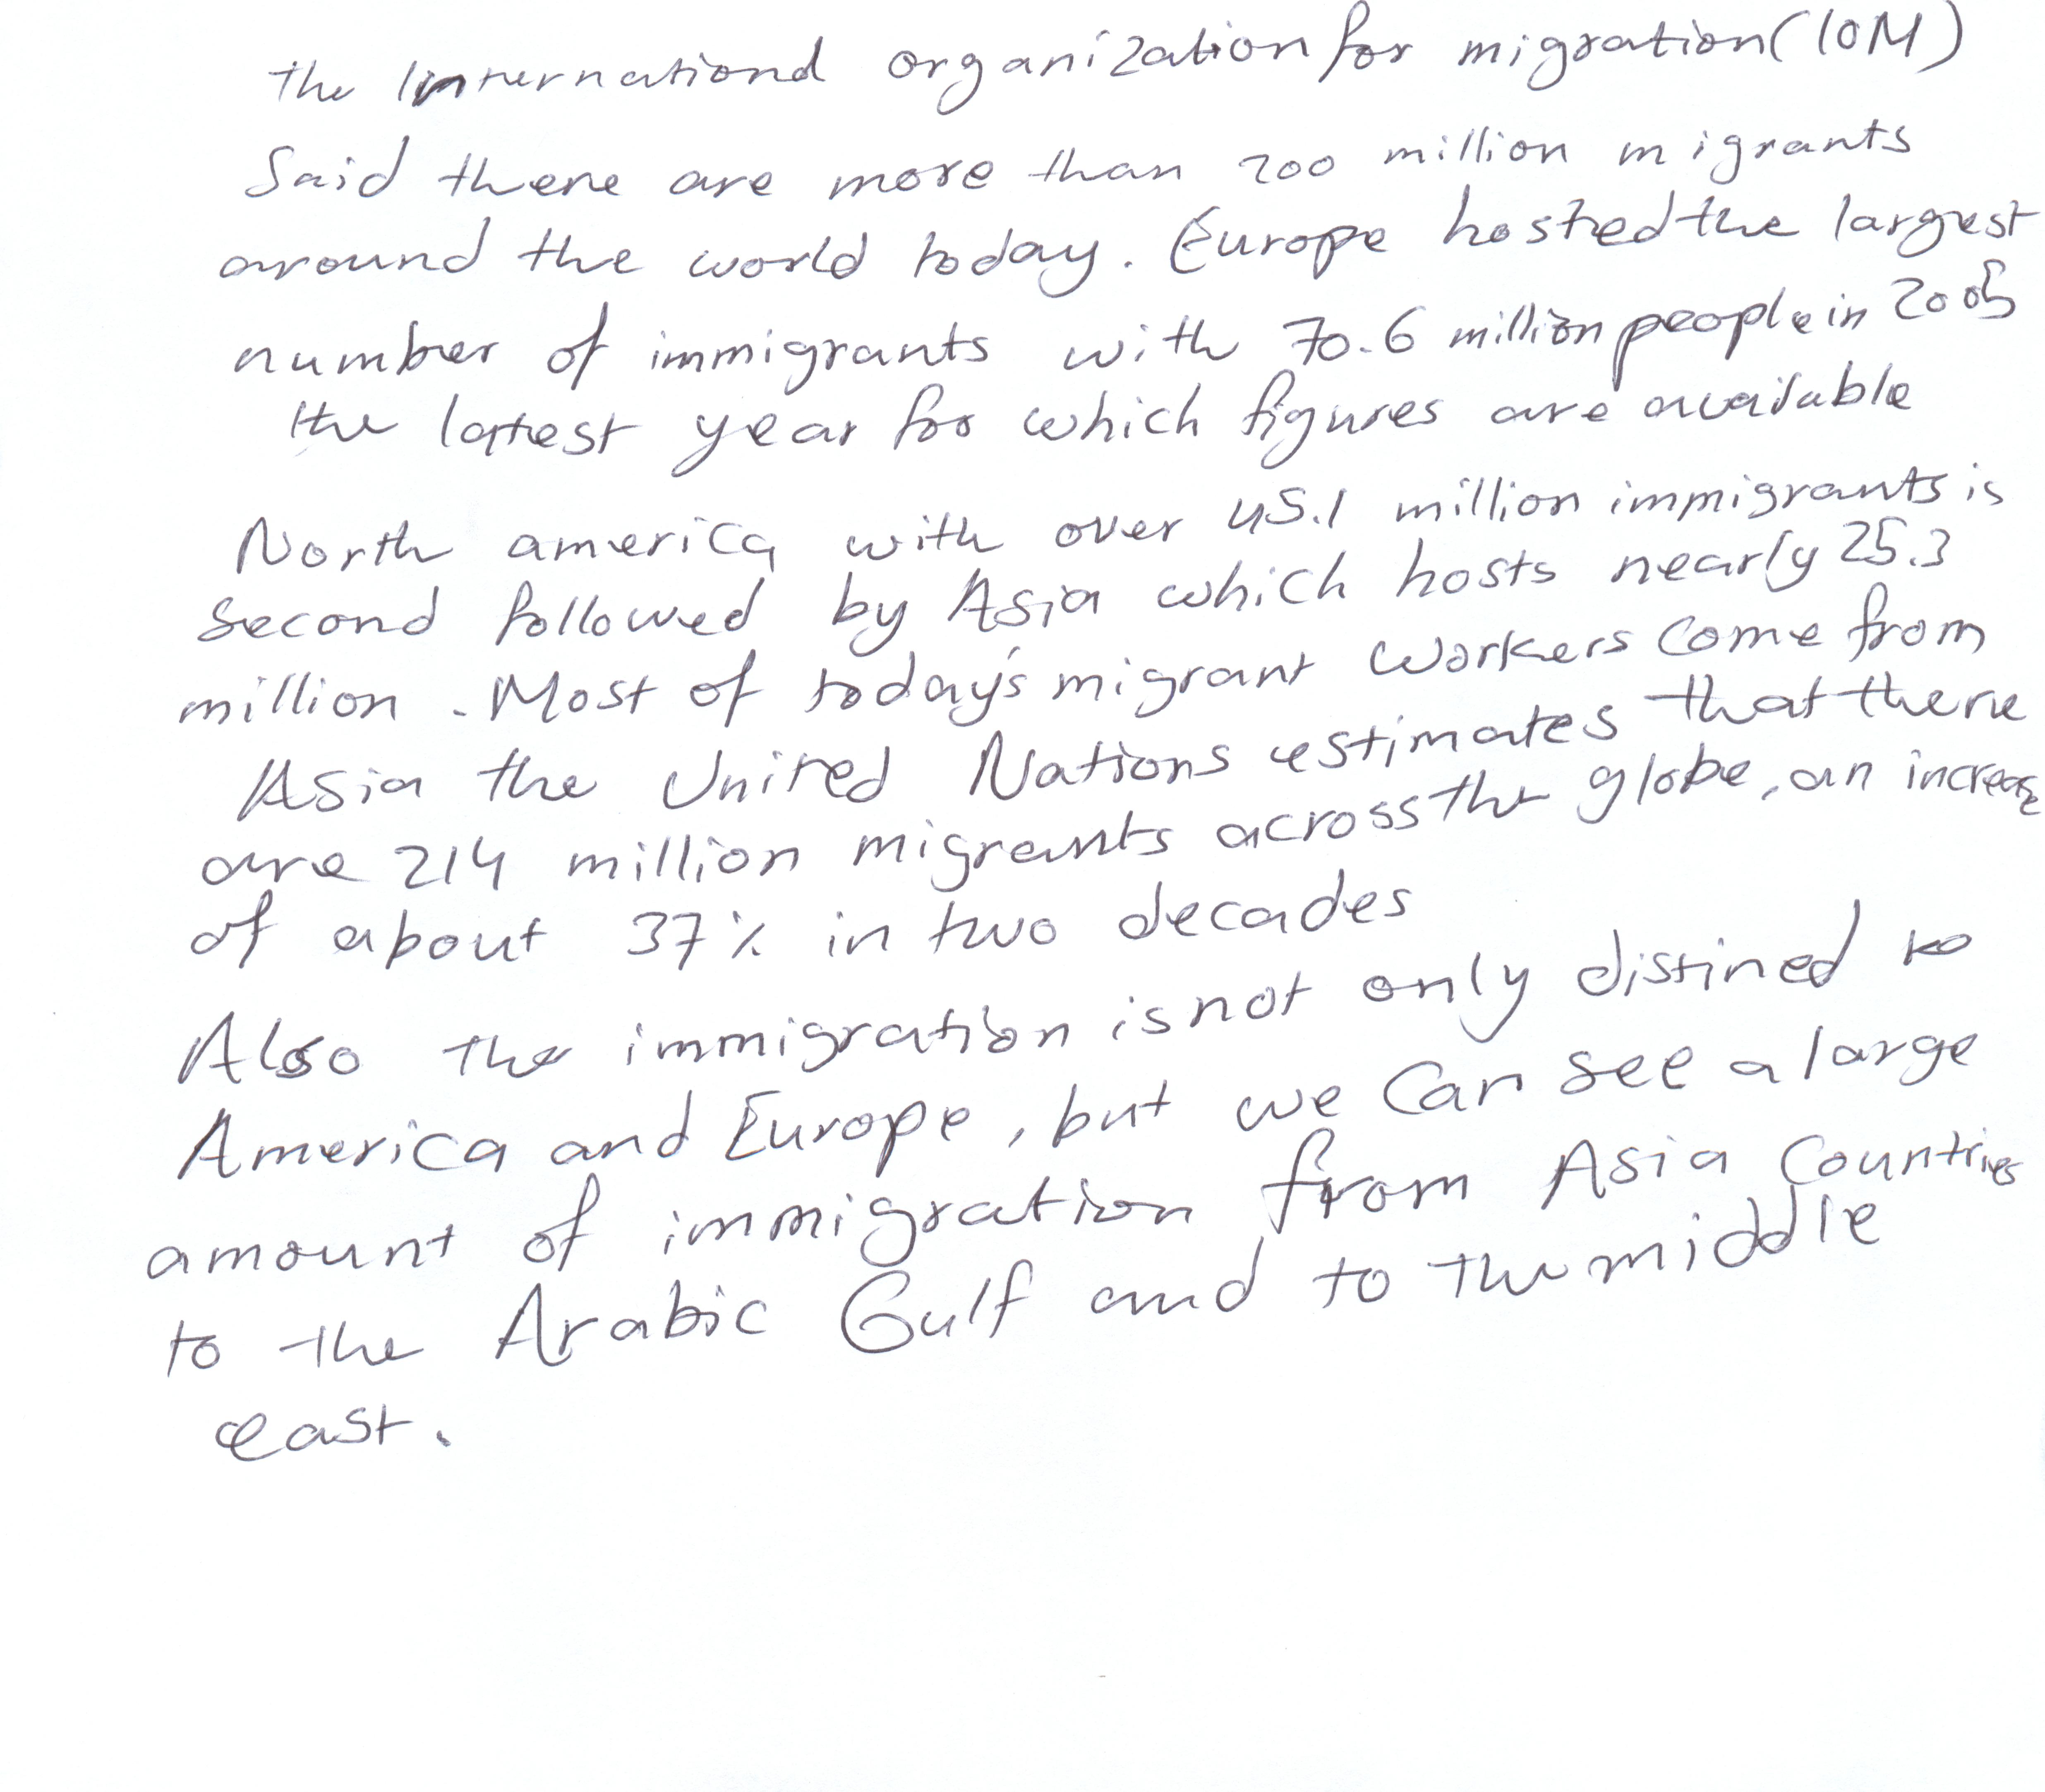 the International organization for migration (IOM)
Said there are more than 200 million migrants
around the world today. Europe hosted the largest
number of immigrants with 70.6 million people in 2005
the latest year for which figures are available
North america with over 45.1 million immigrants is
Second followed by Asia which hosts nearly 25.3
million. Most of today's migrant workers come from
Asia the United Nations estimates that there
are 214 million migrants across the globe, an increase
of about 37% in two decades
Also the immigration is not only distined to
America and Europe, but we can see a large
amount of immigration from Asia Countries
to the Arabic Gulf and to the middle
east.